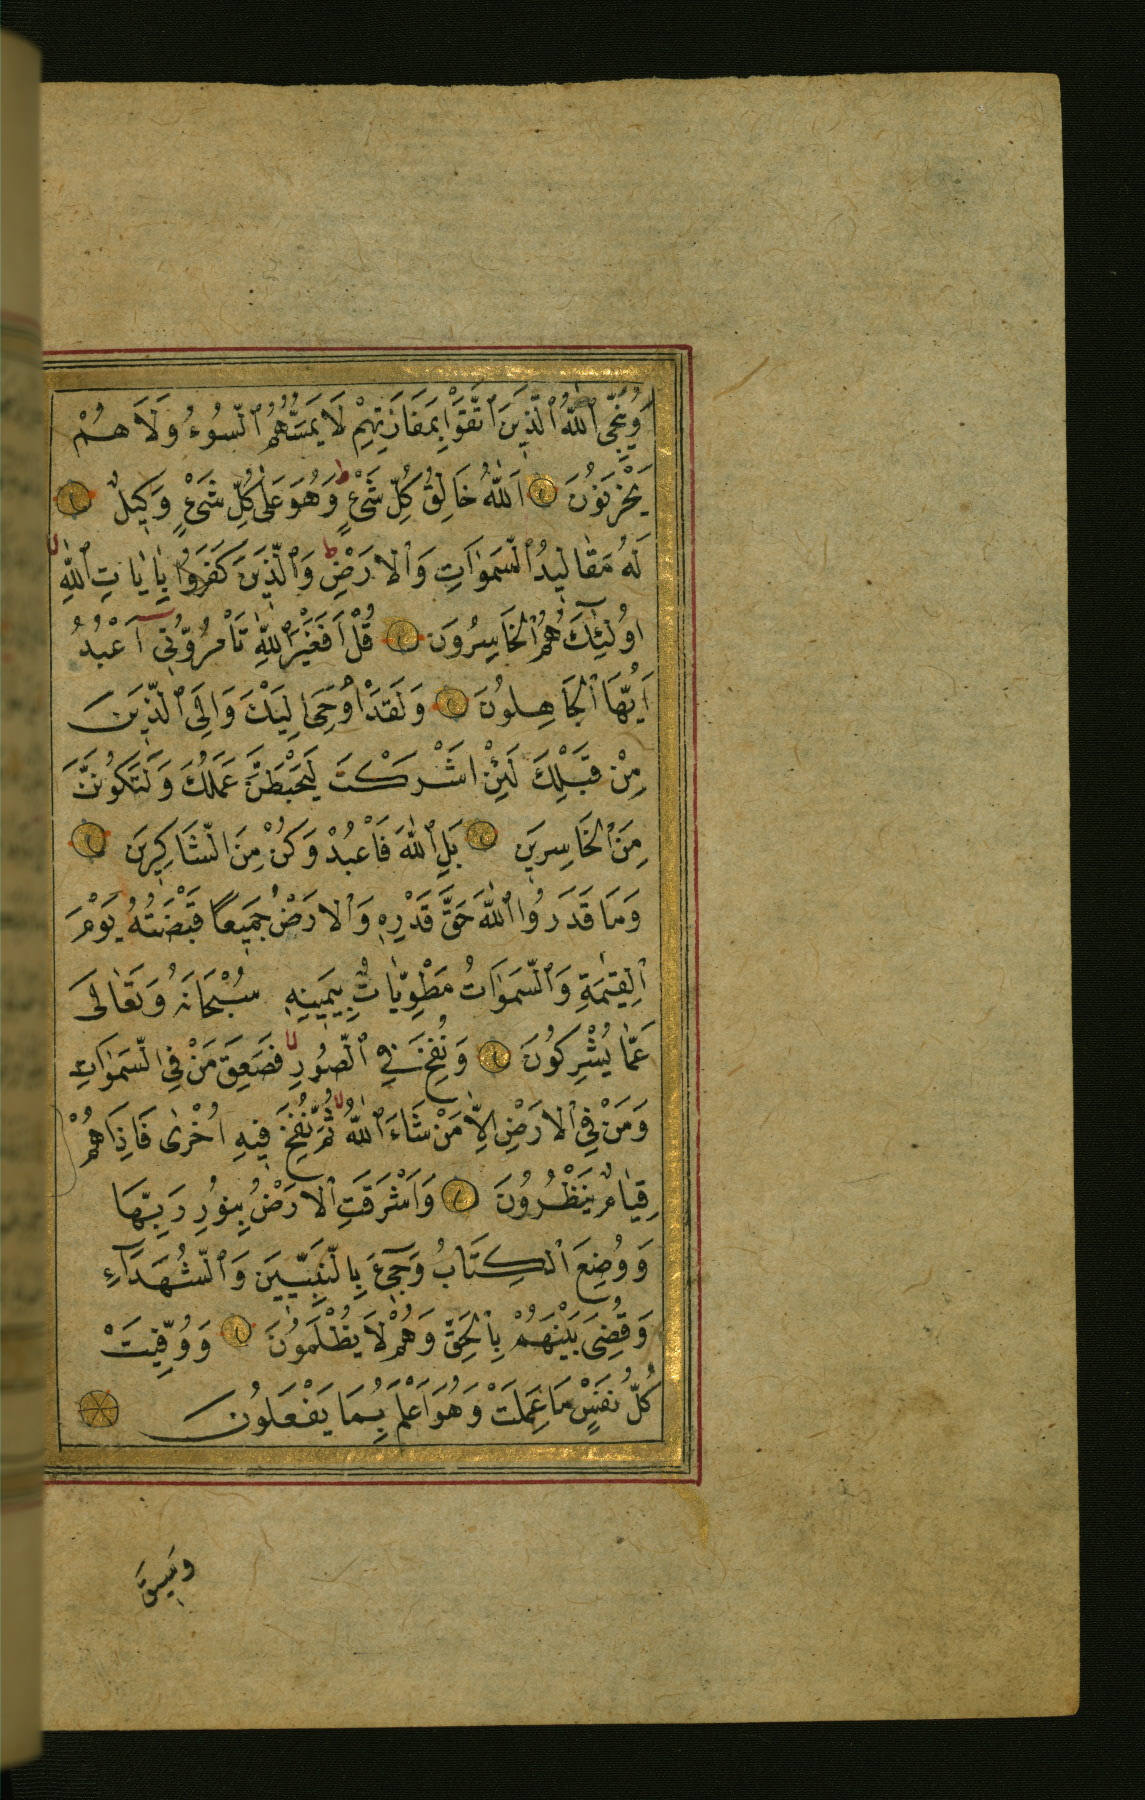 وَيُنَجِّي ٱللّٰهُ ٱلَّذِينَ ٱتَّقَوْا بِمَفَازَتِهِمْ لَا يَمَسُّهُمُ ٱلسُّوءُ وَلَا هُمْ
يَحْزَنُونَ اَللّٰهُ خَالِقُ كُلِّ شَىْءٍ ط وَهُوَ عَلٰى كُلِّ شَىْءٍ وَكِيلٌ
لَهُ مَقَالِيدُ ٱلسَّمٰوَاتِ وَٱلْاَرَضِْ ط وَٱلَّذِينَ كَفَرُوا بِاٰيَاتِ ٱللّٰهِ لا
اُولٰئِكَ هُمُ ٱلْخَاسِرُونَ قُلْ اَفَغَيْرَ ٱللّٰهِ تَاْمُرُوٓنِّى اَعْبُدُ
اَيُّهَا ٱلْجَاهِلُونَ وَلَقَدْ اُوحِىَ اِلَيْكَ وَاِلَى ٱلَّذِينَ
مِنْ قَبْلِكَ لَئِنْ اَشْرَكْتَ لَيَحْبَطَنَّ عَمَلُكَ وَلَتَكُونَنَّ
مِنَ ٱلْخَاسِرِينَ بَلِ ٱللّٰهَ فَاعْبُدْ وَكُنْ مِنَ الشَّاكِرِينَ
وَمَا قَدَرُوا ٱللّٰهَ حَقَّ قَدْرِهِ وَٱلْاَرْضُ جَمِيعًا قَبْضَتُهُ يَوْمَ
ٱلْقِيٰمَةِ وَٱلسَّمٰوَاتُ مَطْوِيَّاتٌ بِيَمِينِهِ سُبْحَانَهُ وَتَعَالٰى
عَمَّا يُشْرِكُونَ وَنُفِخَ فِي ٱلصُّورِ لا فَصَعِقَ مَنْ فِى السَّمٰوَاتِ
وَمَنْ فِى ٱلْاَرْضِ اِلَّا مَنْ شَاءَ ٱللّٰهُ لا ثُمَّ نُفِخَ فِيهِ اُخْرٰى فَاِذَا هُمْ
قِيَامٌ يَنْظُرُونَ وَاَشْرَقَتِ ٱلْاَرْضُ بِنُورِ رَبِّهَا
وَوُضِعَ ٱلْكِتَابُ وَجِىٓءَ بِالنَّبِيّٖينَ وَٱلشُّهَدَآءِ
وَقُضِىَ بَيْنَهُمْ بِٱلْحَقِّ وَهُمْ لَا يُظْلَمُونَ وَوُفِّيَتْ
كُلُّ نَفْسٍ مَا عَمِلَتْ وَهُوَ اَعْلَمُ بِمَا يَفْعَلُونَ
وَسِيقَ